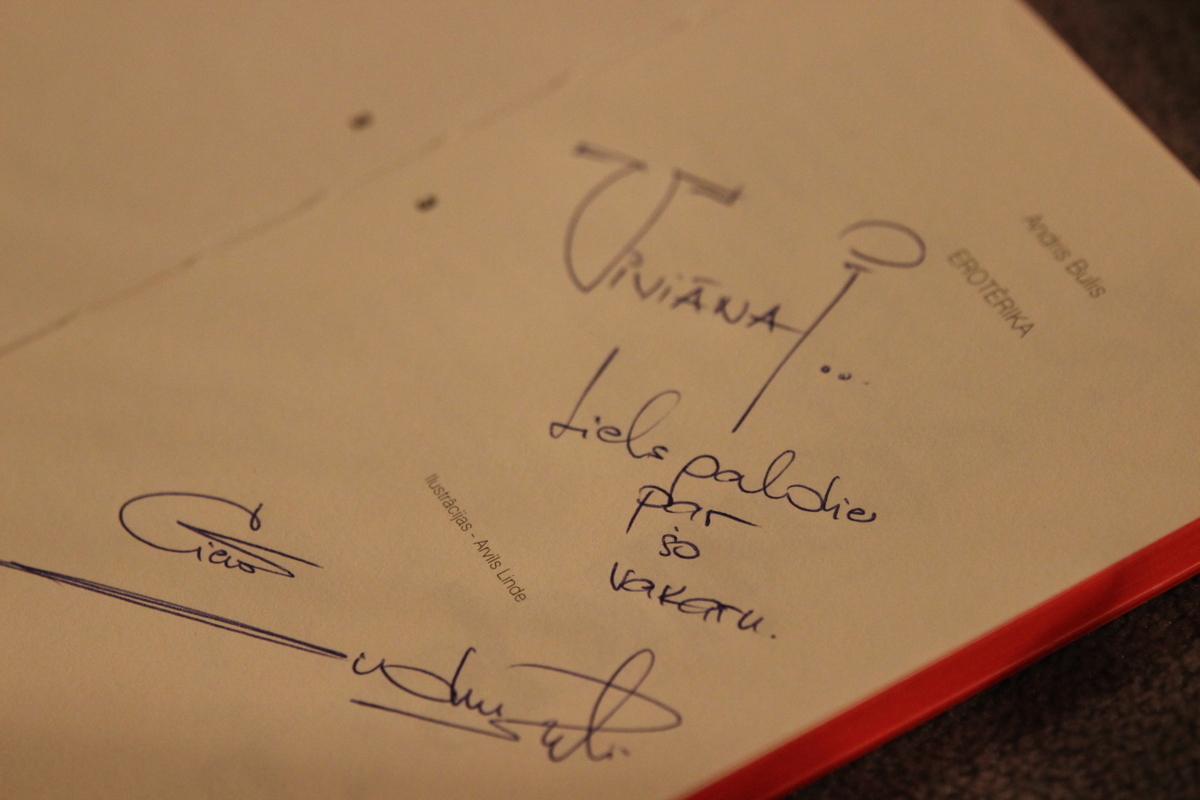 Andris Bulis
EROTĒRIKA
VIVIĀNA
...
Liels paldies
par
šo
vakaru.
Ilustrācijas - Arvils Linde